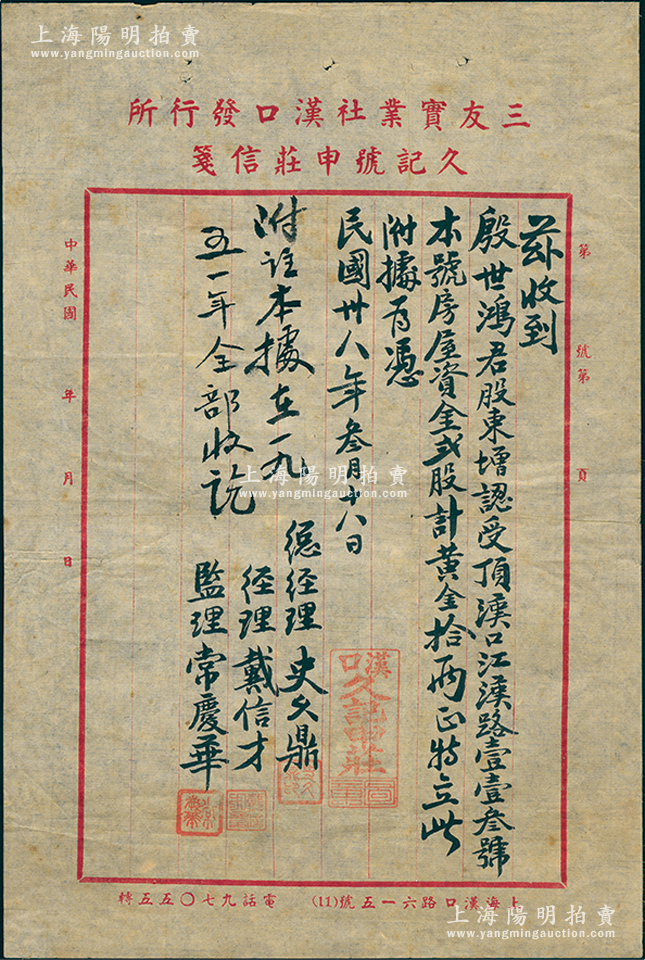 上海陽明拍賣
www.yangmingauction.com
三友實業社漢口發行所
久記號申莊信箋
第 號第 頁
茲收到
殷世鴻君股東增認受頂漢口江漢路壹壹叁號
本號房屋資金弍股計黃金拾兩正特立此
附據為憑
民國卅八年叁月十八日
附註本據在一九
五一年全部收訖
總經理 史久鼎
經理 戴信才
監理 常慶華
漢口久記申莊
中華民國 年 月 日
上海漢口路六一五號(11) 電話九七〇五五轉
上海陽明拍賣
www.yangmingauction.com
上海陽明拍賣
www.yangmingauction.com